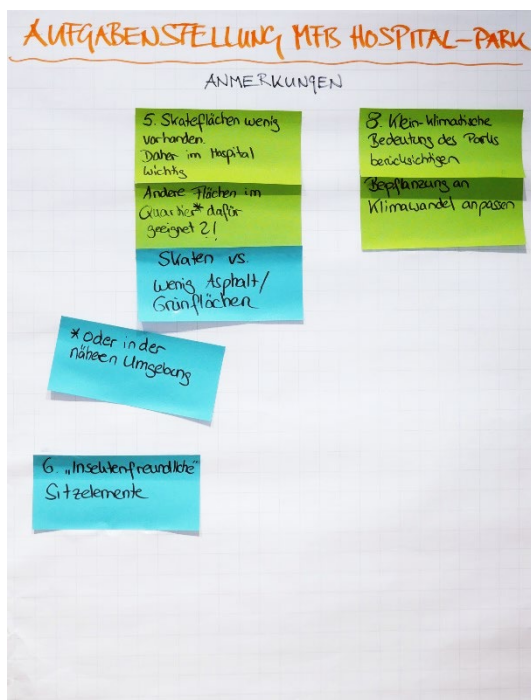 AUFGABENSTELLUNG MFB HOSPITAL-PARK
ANMERKUNGEN
5. Skateflächen wenig
vorhanden.
Daher im Hospital
wichtig
Andere Flächen im
Quartier* dafür
geeignet ?!
Skaten vs.
wenig Asphalt/
Grünflächen
* oder in der
näheren Umgebung
6. „Insektenfreundliche"
Sitzelemente
8. Klein-klimatische
Bedeutung des Parks
berücksichtigen
Bepflanzung an
Klimawandel anpassen